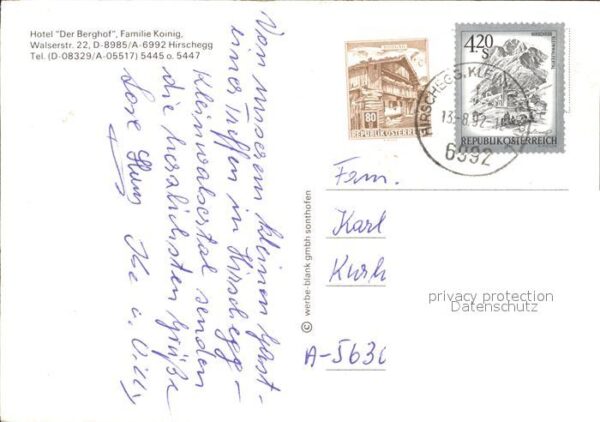 Hotel "Der Berghof", Familie Koinig,
Walserstr. 22, D-8985/A-6992 Hirschegg
Tel. (D-08329/A-05517) 5445 o. 5447
Von unserem kleinen
unser Treffen in Hirschegg -
Kleinwalsertal senden
die herzlichsten Grüße
u. Willy
© werbe-blank gmbh sonthofen
80
REPUBLIK ÖSTERREICH
4.20
S
REPUBLIK ÖSTERREICH
HIRSCHEGG, KLEIN
13.-8.92
6992
Fam.
Karl
A-5630
privacy protection
Datenschutz